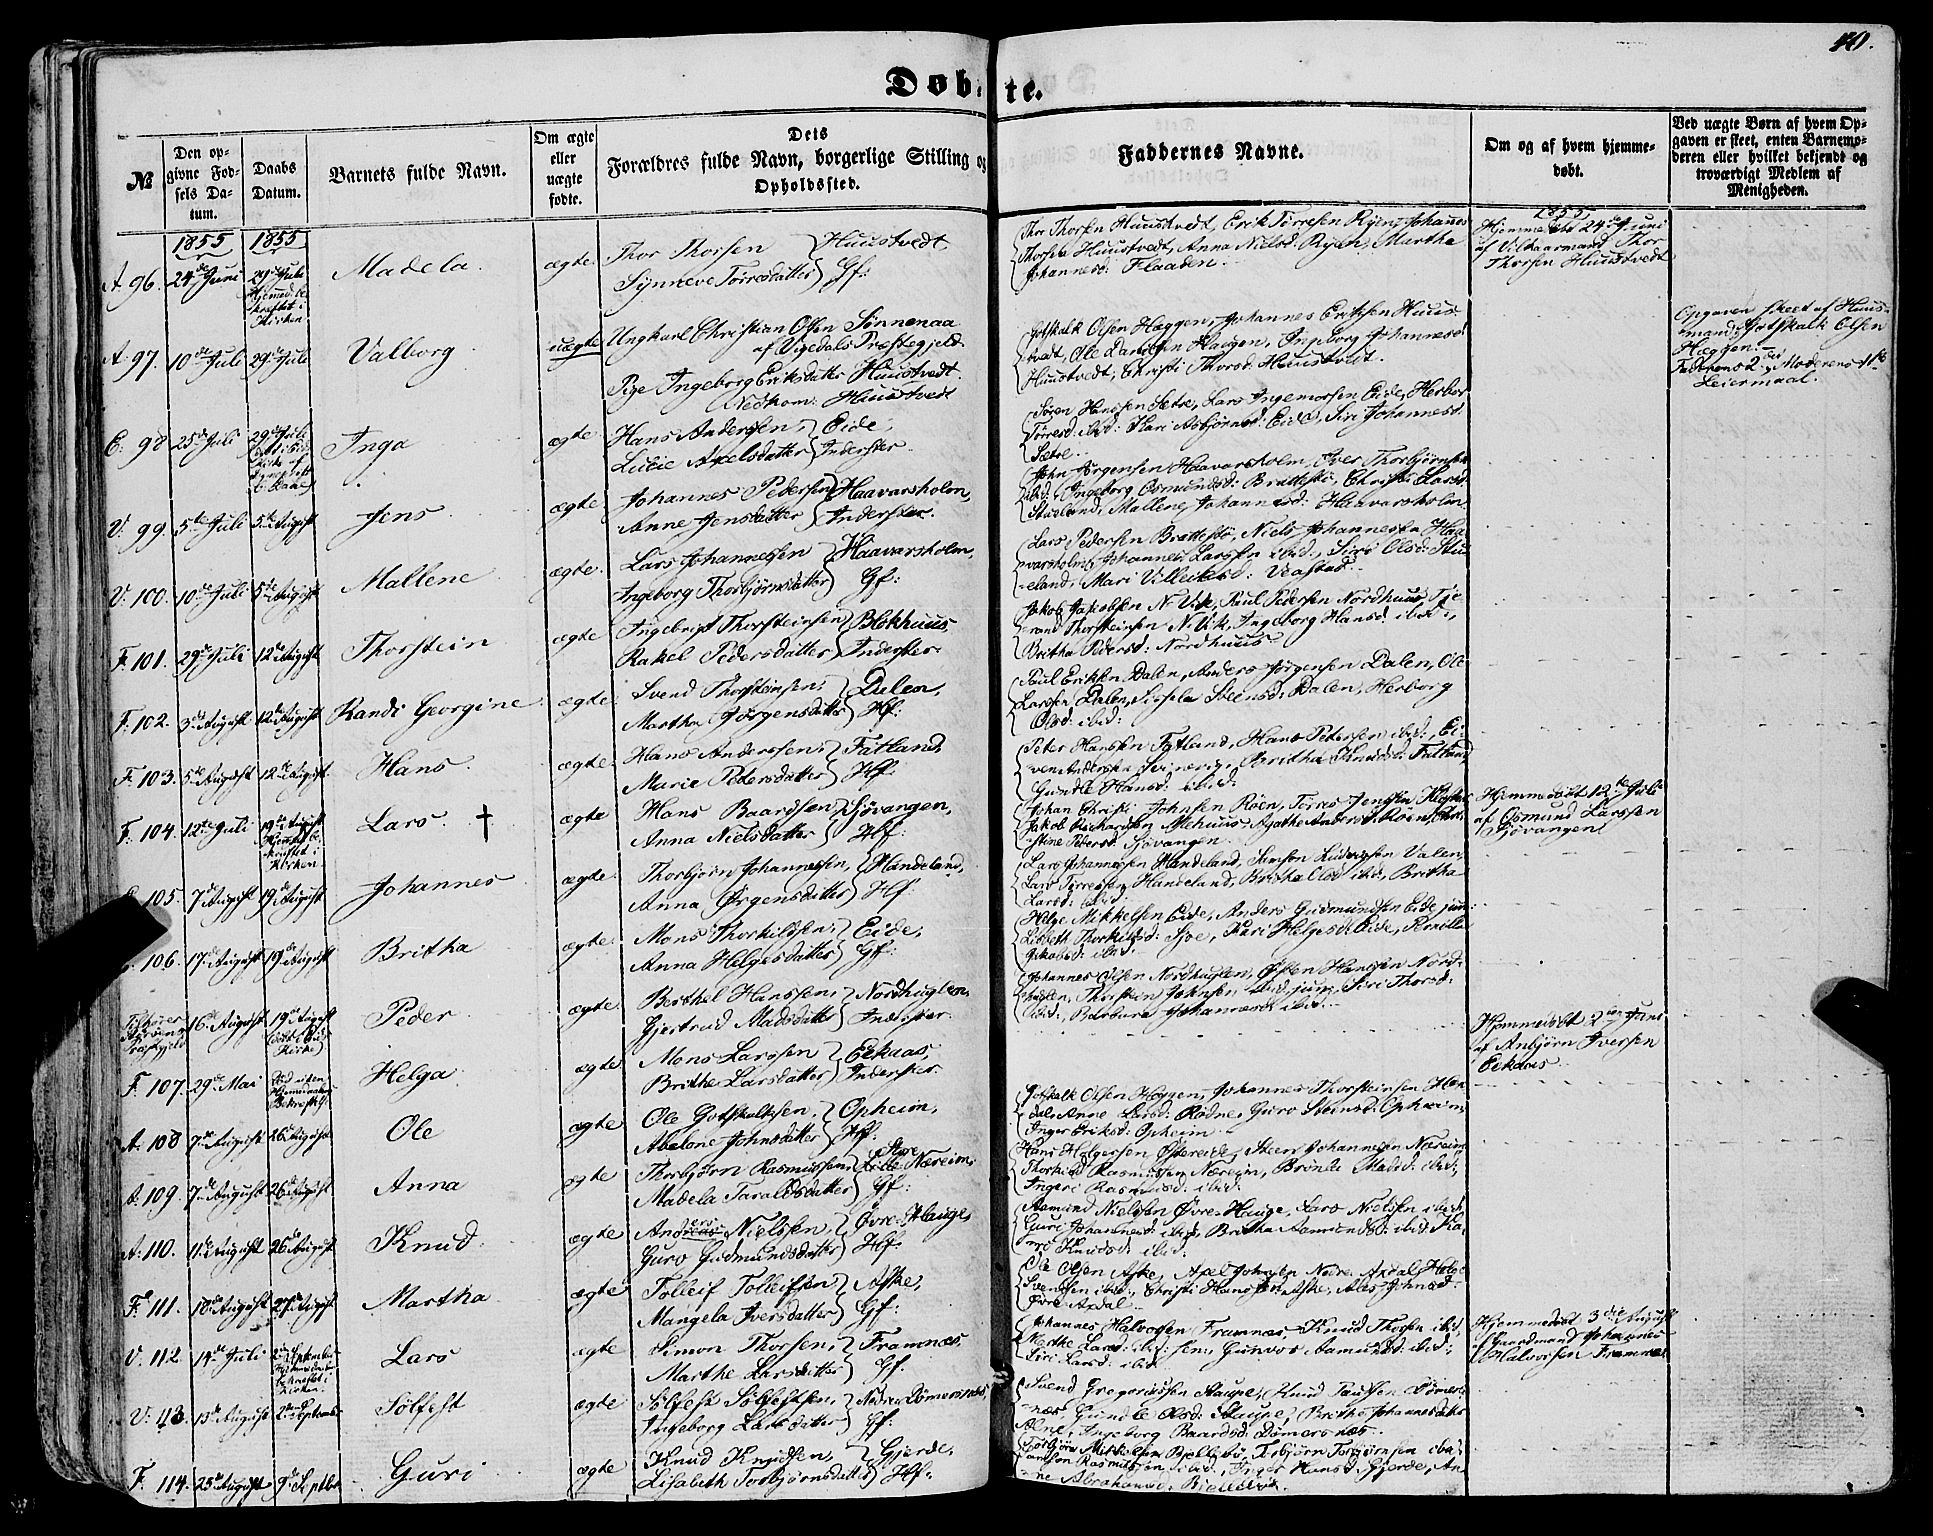 40.
Døbte.
№
Den opgivne Fødsels Datum.
Daabs Datum.
Barnets fulde Navn.
Om ægte eller uægte fødte.
Dets Forældres fulde Navn, borgerlige Stilling og Opholdssted.
Faddernes Navne.
Om og af hvem hjemmedøbt.
Ved uægte Børn af hvem Opgaven er skeet, enten Barnemoderen eller hvilket bekjendt og troværdigt Medlem af Menigheden.
1855 1855
1855
A 96. 24de Juni 29de Juli Hjemmed. bekræftet i Kirken Madela. ægte Thor Thorsen Huustvedt
Synneve Torresdatter Gf:
Thor Thorsen Huustvedt, Erik Torresen Ryen, Johannes
Thorsen Huustvedt, Anna Nielsd: Ryen, Martha
Johannesd: Flaaden.
Hjemmedøbt 24de Juni
af Vilkaarmand Thor
Thorsen Huustvedt
A 97. 10de Juli 29de Juli Valborg uægte Ungkarl Christian Olsen Sønnenaa
af Vigedals Præstegjeld.
Pige Ingeborg Eriksdatter Huustvedt
Nedkom: Huustvedt
Gotskalk Olsen Hæggen, Johannes Eriksen Huus-
tvedt, Ole Danielsen Haugen, Ingeborg Johannesd:
Huustvedt, Christi Thorsd: Huustvedt.
Opgaven skeet af Huus-
mand Gotskalk Olsen
Hæggen.
Faderens 2det, Moderens 1ste
Leiermaal.
E. 98 25de Juli 29de Juli Inga ægte Hans Andersen, Eide,
Lucie Axelsdatter Inderster
Søren Hansen Sætre, Lars Ingemorsen Eide, Herbor
Torresd: ibid: Kari Asbjørnsd: Eide, Siri Johannesd:
Sætre.
V. 99. 5te Juli 5te August Jens ægte Johannes Pedersen Haavarsholm,
Anne Jensdatter Inderster.
John Jørgensen Haavarsholm, Iver Thorbjørnsen
ibid: Ingeborg Osmundsd: Brattestø, Christi Larsd:
Stueland, Mallene Johannesd: Haavarsholm
V. 100. 10de Juli 5te August Mallene ægte Lars Johannesen Haavarsholm,
Ingeborg Thorbjørnsdatter Gf:
Lars Pedersen Brattestø, Niels Johannesen Haa-
varsholm, Johannes Larssen ibid:, Siri Olsd: Stu-
eland, Mari Villeiksd: Veastad.
F. 101. 29de Juli 12te August Thorstein ægte Ingebrigt Thorsteinsen Blokhuus,
Rakel Pedersdatter Inderster.
Jakob Jakobsen N. Vik, Paul Pedersen Nordhuus, Tje-
rand Thorsteinsen N. Vik, Ingeborg Hansd: ibid:,
Britha Pedersd: Nordhuus
F. 102. 3de August 12te August Randi Georgine ægte Svend Thorsteinsen, Dalen,
Martha Jørgensdatter Hf:
Paul Eriksen Dalen, Anders Jørgensen Dalen, Ole
Larssen Dalen, Siselia Steensd: Dalen, Herborg
Olsd: ibid:
F. 103. 5te August 12te August Hans ægte Hans Anderssen, Fatland,
Marie Petersdatter Hf:
Peter Hansen Fatland, Hans Petersen ibid:, Ei-
ven Andersen Svinevig, Britha Knudsd: Fatland
Gundle Hansd: ibid:
F. 104. 12te Juli 19de August Hjemmed. bekræftet i Kirken Lars. † ægte Hans Baardsen, Sjøvangen,
Anna Nielsdatter Hf:
Johan Christi Johnsen Røen, Torres Jensen Kloster
Jakob Richardsen Mehuus, Agathe Andersd: Røen, Chri-
stine Petersd: Sjøvangen.
Hjemmedøbt 12te Juli
af Osmund Larssen
Sjøvangen
105. 7de August 19de August Johannes ægte Thorbjørn Johannessen, Handeland,
Anna Ørgensdatter Hf:
Lars Johannesen Handeland, Simson Ludvigsen Valen,
Lars Torresen Handeland, Britha Olsd: ibid:, Britha
Larsd: ibid:
106. 17de August 19de August Britha ægte Mons Thorkildsen, Eide,
Anna Helgesdatter Gf:
Helge Mikkelsen Eide, Anders Gudmundsen Eide jun:
Lisbeth Thorkildsd: Sjoe, Kari Helgesd: Eide, Pernille
Jakobsd: ibid:
16de August 19de August Peder ægte Berthel Hanssen, Nordhuglen,
Gjertrud Madsdatter Inderster
Johannes Olsen Nordhuglen, Østen Hanssen Nord-
huglen, Thorstein Johnsen ibid: jun:, Siri Thorsd:
ibid:, Barbara Johannesd: ibid:
F. 107. 29de Mai Helga ægte Mons Larssen Eikaas,
Brithe Larsdatter Inderster
Hjemmedøbt 2den Juni
af Anbjørn Iversen
Eikaas
A. 108 7de August 26de August Ole ægte Ole Gotskalksen, Opheim,
Abelone Johnsdatter Hf:
Gotskalk Olsen Høggen, Johannes Thorsteinsen Øl-
dal, Anne Larsd: Rødne, Guro Steinsd: Opheim,
Inger Eriksd: Opheim
A. 109. 7de August 26de August Anna ægte Thorbjørn Rasmussen, Store Næreim,
Madela Taraldsdatter Gf:
Hans Helgersen Østereide, Steen Johannesen Næreim,
Thorkild Rasmussen Næreim, Brønla Madsd: ibid:,
Ingeri Rasmusd: ibid:
A. 110. 11te August 26de August Knud ægte Anders Nielssen, Øvre-Hauge,
Guro Gudmundsdatter Hf:
Aamund Nielsen Øvre-Hauge, Lars Nielsen ibid:
Guri Johannesd: ibid: Britha Aamundsd: ibid: Ka-
ri Knudsd: ibid:
F. 111. 18de August 27de August Martha ægte Tolleif Tolleifsen, Aske,
Mangela Iversdatter Gf:
Ole Olsen Aske, Axel Johnsen Nedre Axdal, Helge
Svendsen ibid:, Christi Hansd: Aske, Ales Johnsd:
Øvre Axdal
V. 112 14de Juli 2den September Lars ægte Simon Thorsen, Framnæs,
Marthe Larsdatter Gf:
Johannes Halvorsen Framnæs, Knud Thorsen ibid:,
Merthe Larsd: ibid: sen:, Gunvor Aamundsd: ibid:,
Siri Larsd: ibid:
Hjemmedøbt 3die August
Gaardmand Johannes
Halvorsen Framnæs
V. 113. 13de August 2den September Sølfest ægte Sølfest Sølfestsen, Nedre Dømersnæs,
Ingeborg Larsdatter Gf:
Svend Gregoriussen Staupe, Knud Paulsen Dømers-
næs, Gundle Olsd: Staupe, Britha Johannesdatter
Ølne, Ingeborg Baardsd: Dømersnæs
F. 114. 25de August 9de Septbr Guri ægte Knud Knudsen, Gjerde,
Lisabeth Torbjørnsdatter Hf:
Torbjørn Mikkelsen Bjellebø, Torbjørn Torbjørnsen ibid:
Rasmussen ibid:, Inger Hansd: Gjerde, An-
ne Abrahamsd: Bjellebø.